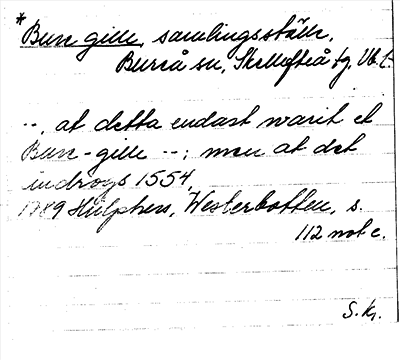 * Bure gille, samlingsställe,
Bureå sn, Skellefteå tg, Vb. l.
--, at detta endast warit et
Bure-gille --; men at det
indrogs 1554,
1789 Hülphers, Westerbotten, s.
112 not c.
S. K.